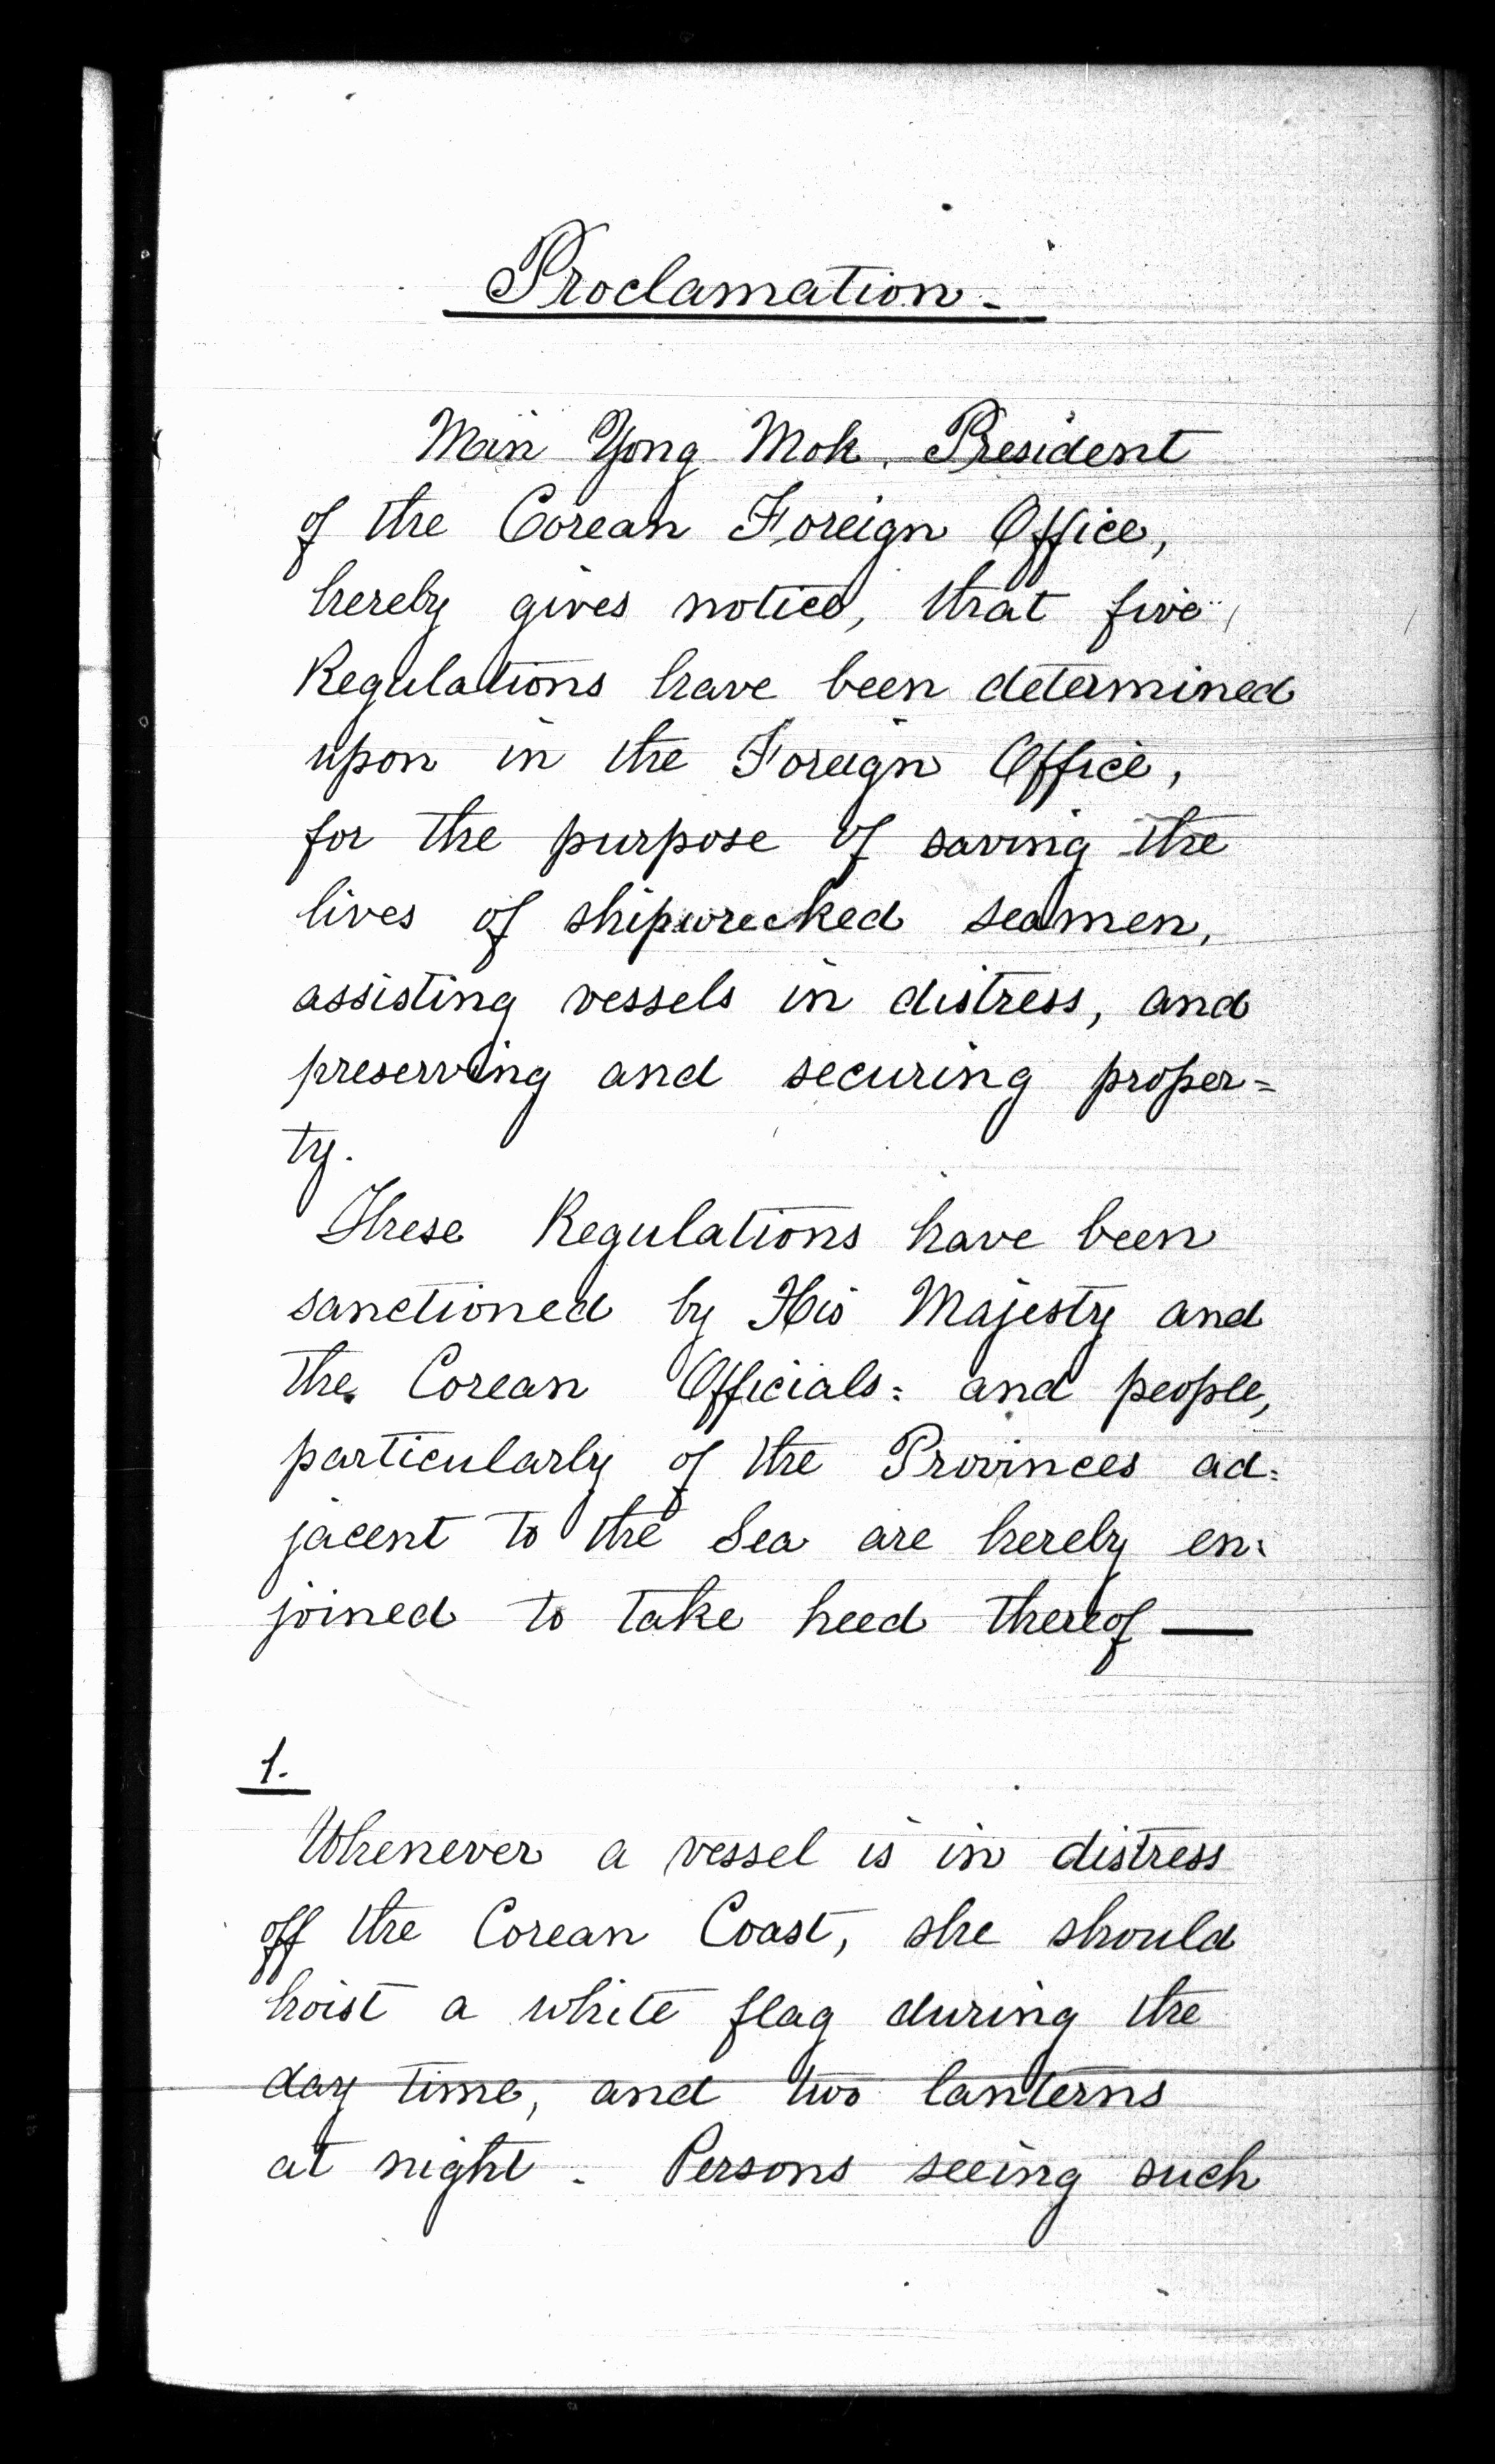 Proclamation.
Min Yong Mok, President
of the Corean Foreign Office,
hereby gives notice, that five
Regulations have been determined
upon in the Foreign Office,
for the purpose of saving the
lives of shipwrecked seamen,
assisting vessels in distress, and
preserving and securing proper=
ty.
These Regulations have been
sanctioned by His Majesty and
the Corean Officials= and people,
particularly of the Provinces ad=
jacent to the Sea are hereby en=
joined to take heed thereof —
1.
Whenever a vessel is in distress
off the Corean Coast, she should
hoist a white flag during the
day time, and two lanterns
at night. Persons seeing such